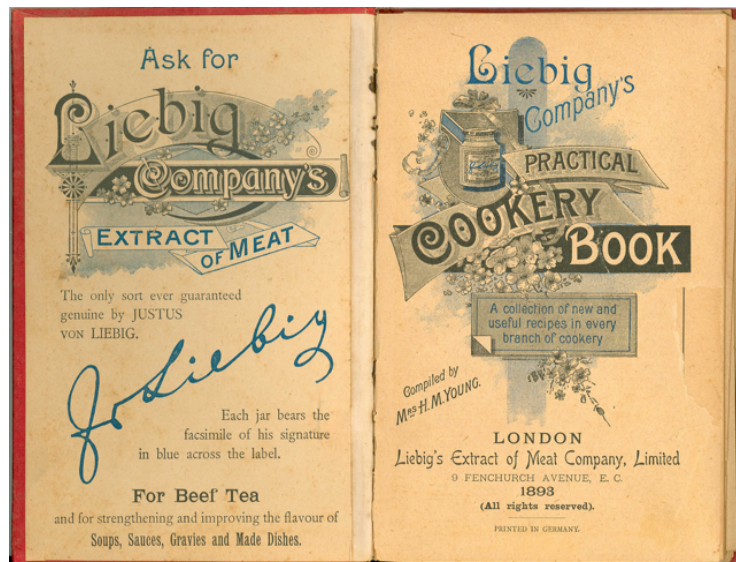 Ask for
Liebig
Company's
EXTRACT
OF MEAT
The only sort ever guaranteed
genuine by JUSTUS
VON LIEBIG.
Jv Liebig
Each jar bears the
facsimile of his signature
in blue across the label.
For Beef Tea
and for strengthening and improving the flavour of
Soups, Sauces, Gravies and Made Dishes.
Liebig
Company's
PRACTICAL
COOKERY
BOOK
A collection of new and
useful recipes in every
branch of cookery
Compiled by
MRS H. M. YOUNG.
LONDON
Liebig's Extract of Meat Company, Limited
9 FENCHURCH AVENUE, E. C.
1893
(All rights reserved).
PRINTED IN GERMANY.